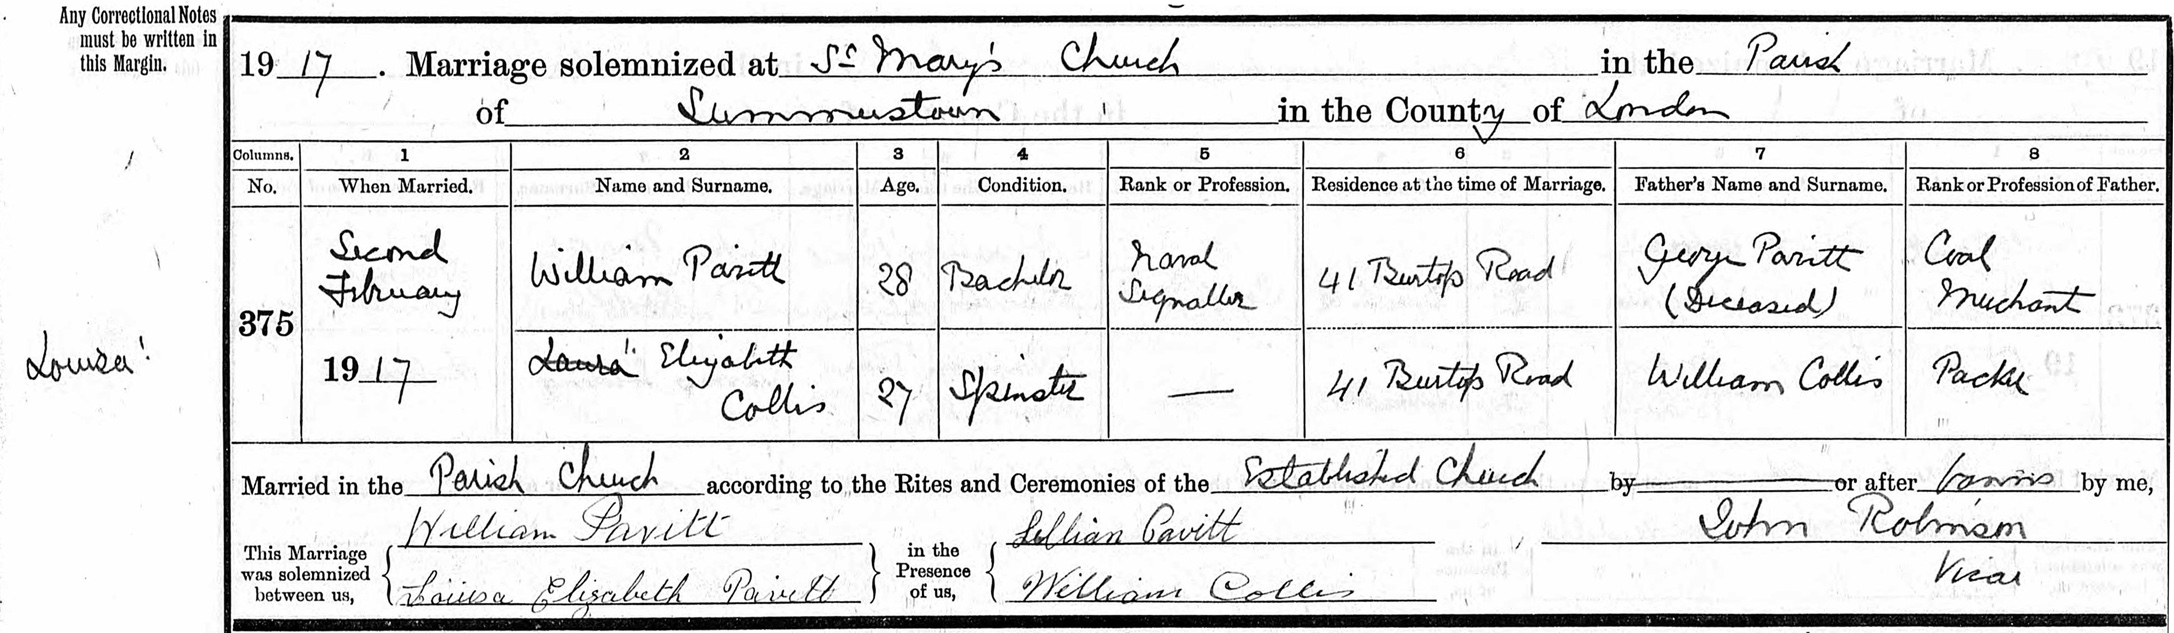 Any Correctional Notes
must be written in
this Margin.
1917. Marriage solemnized at St Mary's Church in the Parish
of Summerstown in the County of London
Columns. 1 2 3 4 5 6 7 8
No. When Married. Name and Surname. Age. Condition. Rank or Profession. Residence at the time of Marriage. Father's Name and Surname. Rank or Profession of Father.
375
Second
February
1917
William Pavitt 28 Bachelor Naval
Signaller
41 Burtop Road George Pavitt
(Deceased)
Coal
Merchant
Louisa
Laura Elizabeth
Collis
27 Spinster — 41 Burtop Road William Collis Packer
Married in the Parish Church according to the Rites and Ceremonies of the Established Church by — or after banns by me,
This Marriage
was solemnized
between us,
William Pavitt
Louisa Elizabeth Pavitt
in the
Presence
of us,
Lillian Pavitt
William Collis
John Robinson
Vicar